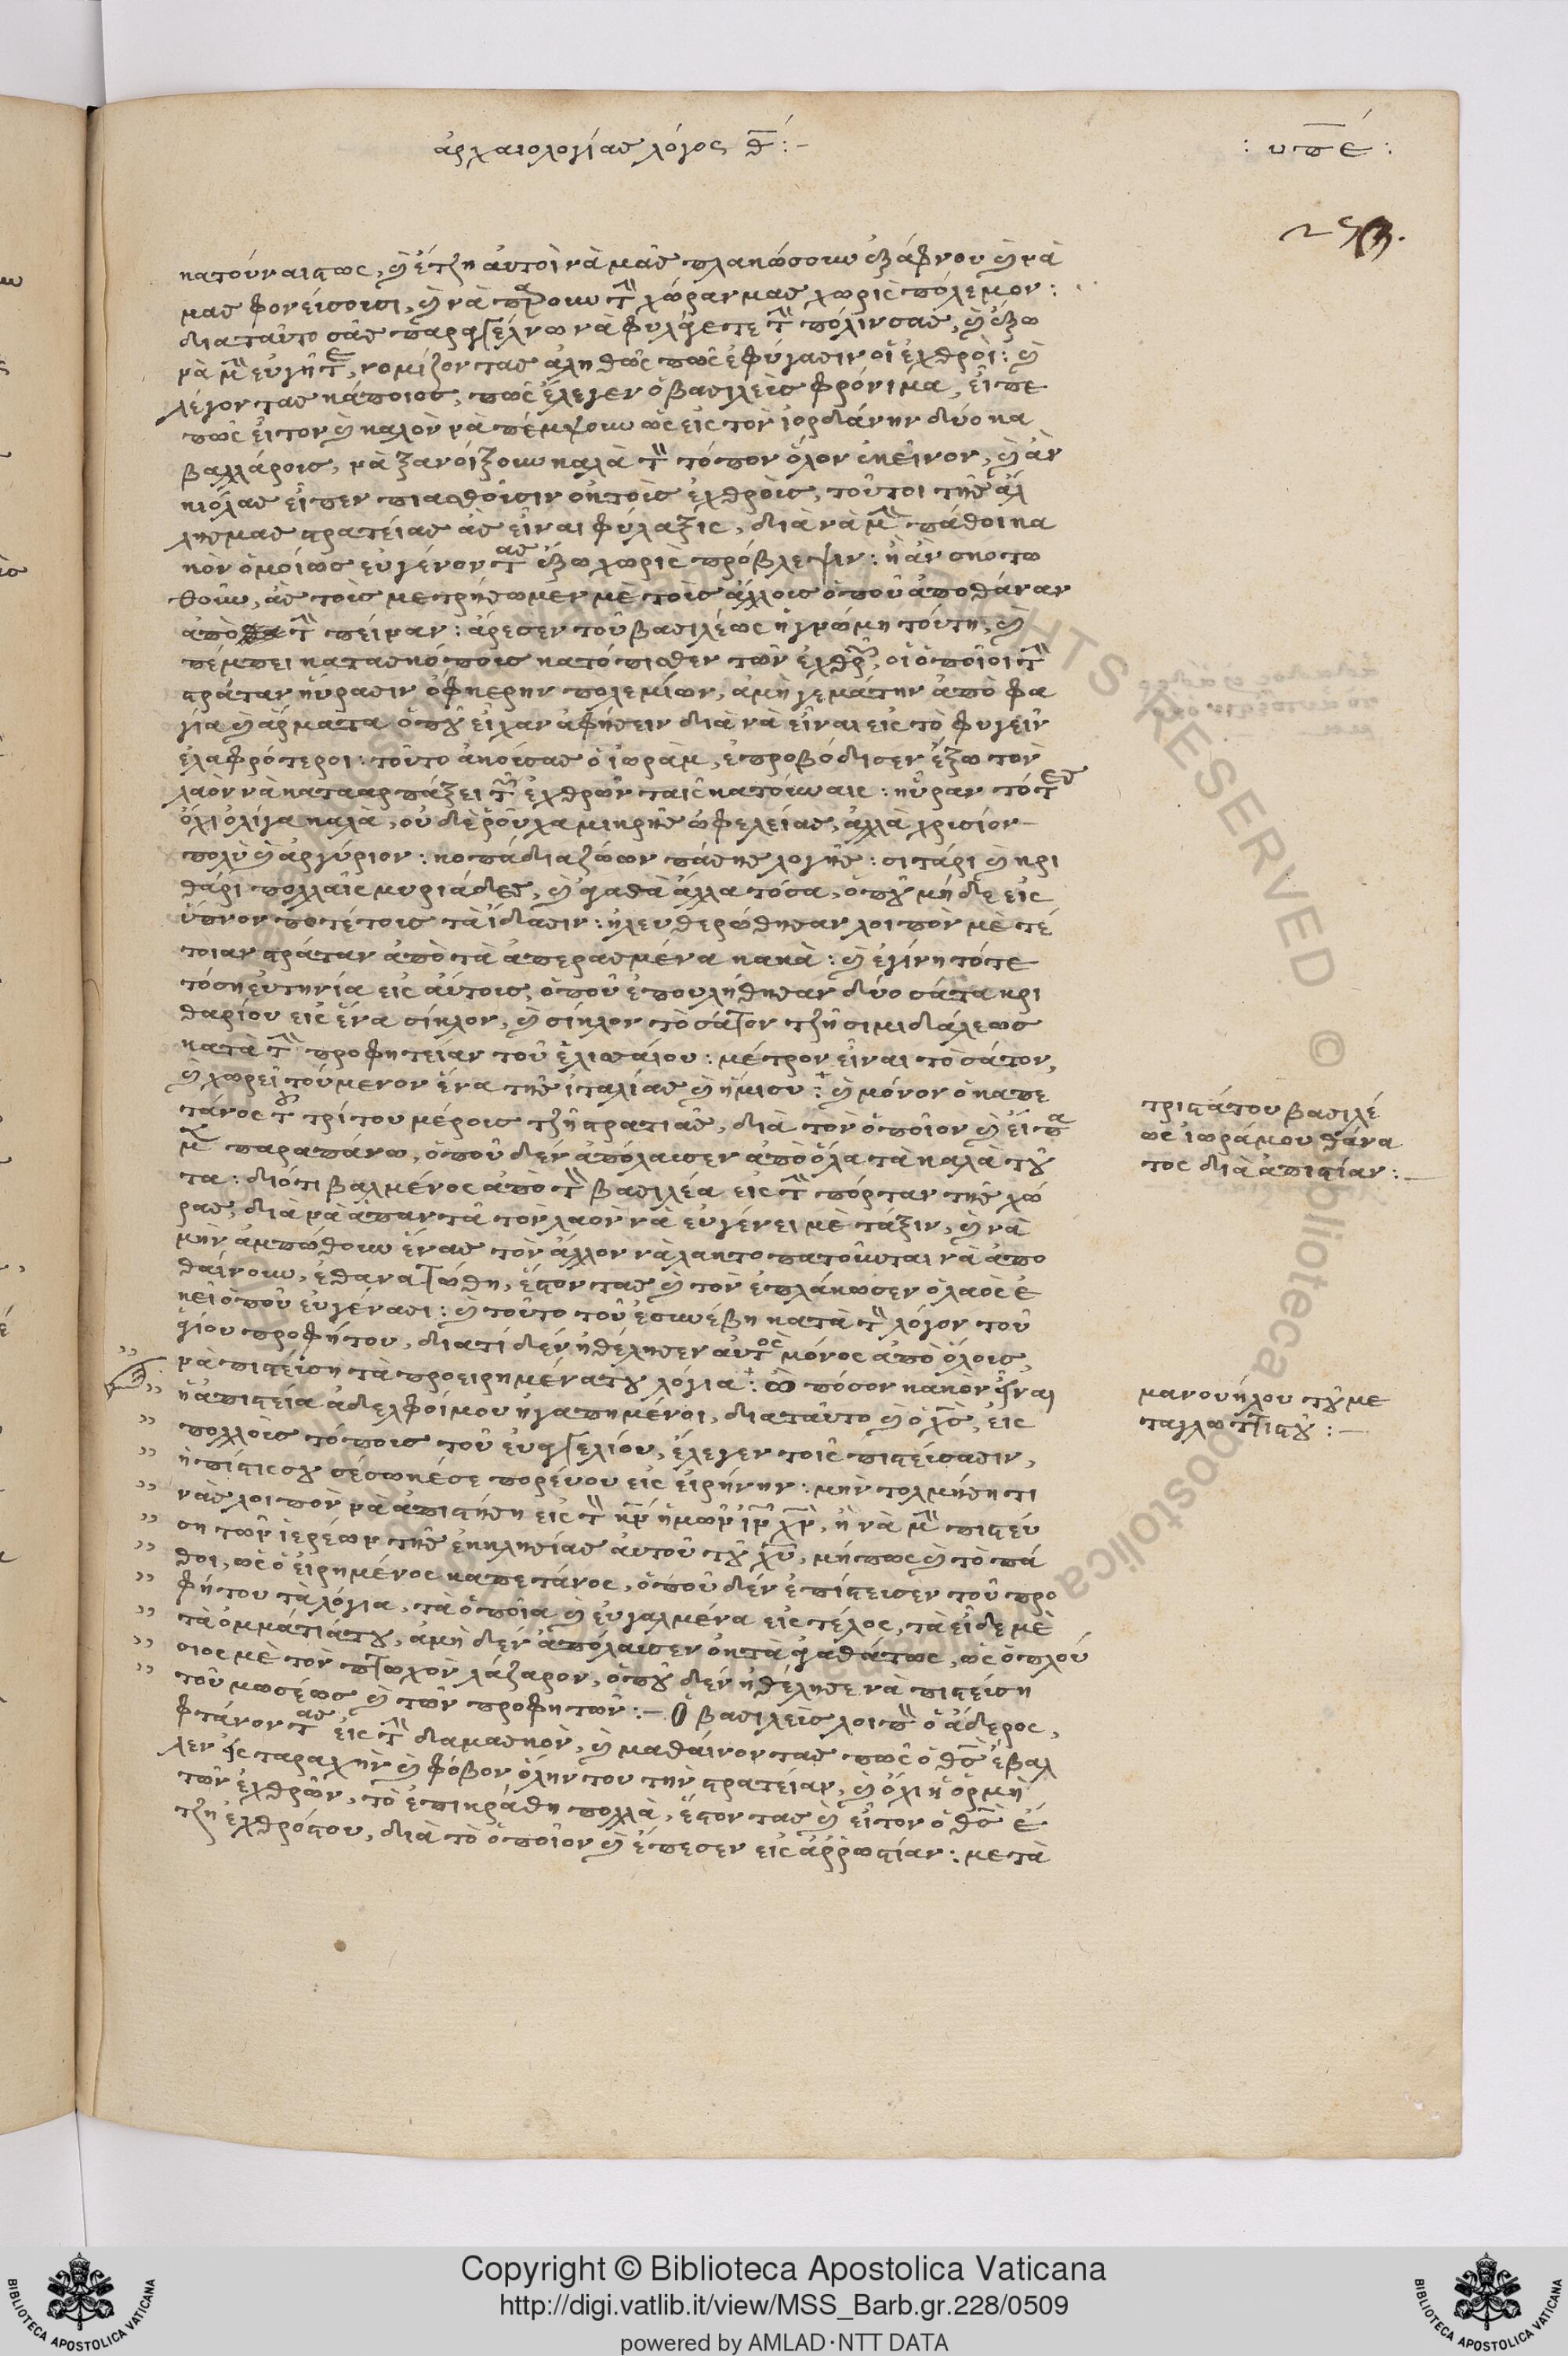 ἀρχαιολογίας λόγος θ̅ :-
: υπε :
253.
κατούναις τως, καὶ ἔτζη αὐτοὶ νὰ μᾶς πλακώσουν ἐξάφνου καὶ νὰ
μας φονεύσουσι, καὶ νὰ πάρουν τὴν χώραν μας χωρὶς πόλεμον :
διαταῦτο σᾶς παραγγέλνω νὰ φυλάγετε τὴν πόλιν σας, καὶ ἔξω
νὰ μὴν εὐγῆτε, νομίζοντας ἀληθῶς πῶς ἐφύγασιν οἱ ἐχθροὶ : καὶ
λέγοντας κάποιος, πῶς ἔλεγεν ὁ βασιλεὺς φρόνιμα, εἶπε
πῶς εἶτον καὶ καλὸν νὰ πέμψουν ὡς εἰς τὸν ἰορδάνην δύο κα
βαλλάρους, νὰ ξανοίξουν καλὰ τὸν τόπον ὅλον ἐκεῖνον, καὶ ἂν
κιόλας εἶπεν πιασθοῦσιν ἐκ τοὺς ἐχθροὺς, τοῦτοι τῆς ἄλ
λης μας στρατείας ἂς εἶναι φύλαξις, διὰ νὰ μὴν πάθοι κα
κὸν ὁμοίως εὐγένοντας ἔξω χωρὶς πρόβλεψιν : ἢ ἂν σκοτω
θοῦν, ἂς τοὺς μετρήσωμεν μὲ τοὺς ἄλλους ὁποῦ ἀποθάναν
ἀπὸ τὴν πεῖναν : ἄρεσεν τοῦ βασιλέως ἡ γνώμη τούτη, καὶ
πέμπει κατασκόπους κατόπισθεν τῶν ἐχθρῶν, οἱ ὁποῖοι τὴν
στράταν ηὕρασιν εὔκερην πολεμίων, ἀμὴ γεμάτην ἀπὸ φα
γία καὶ ἄρματα ὁποῦ εἶχαν ἀφήσειν διὰ νὰ εἶναι εἰς τὸ φυγεῖν
ἐλαφρότεροι : τοῦτο ἀκούσας ὁ ἰωρὰμ, ἐπροβόδισεν ἔξω τὸν
λαὸν νὰ καταρπάξει τῶν ἐχθρῶν ταῖς κατούναις : ηὗραν τότες
ὄχι ὀλίγα καλὰ, οὐδὲ ῥοῦχα μικρῆς ὠφελείας, ἀλλὰ χρυσίον
πολὺ καὶ ἀργύριον : κοπάδια ζώων πάσης λογῆς : σιτάρι καὶ κρι
θάρι πολλαῖς μυριάδες, καὶ ἀγαθὰ ἄλλα τόσα, ὁποῦ μηδὲ εἰς
ὕπνον ποτέ τους τὰ εἴδασιν : ἠλευθερώθησαν λοιπὸν μὲ τέ
τοιαν στράταν ἀπὸ τὰ ἀπερασμένα κακὰ : καὶ ἐγίνη τότε
τόση εὐτηνία εἰς αὐτοὺς, ὁποῦ ἐπουλήθησαν δύο σάτα κρι
θαρίου εἰς ἕνα σίκλον, καὶ σίκλον τὸ σάτον τζῆ σιμιδάλεως
κατὰ τὴν προφητείαν τοῦ ἐλισσαίου : μέτρον εἶναι τὸ σάτον,
καὶ χωρεῖ τούμενον ἕνα τῆς ἰταλίας καὶ ἥμισυ : καὶ μόνον ὁ καπε
τάνος τοῦ τρίτου μέρους τζῆ στρατιᾶς, διὰ τὸν ὁποῖον καὶ εἴπα
μεν παραπάνω, ὁποῦ δὲν ἀπόλαυσεν ἀπὸ ὅλα τὰ καλὰ τοῦ
τα : διότι βαλμένος ἀπὸ τὸν βασιλέα εἰς τὴν πόρταν τῆς χώ
ρας, διὰ νὰ ἀπαντᾶ τὸν λαὸν νὰ εὐγένει μὲ τάξιν, καὶ νὰ
μὴν ἀμπώθουν ἕνας τὸν ἄλλον νὰ λακτοπατοῦνται νὰ ἀπο
θαίνουν, ἐθανατώθη, ἔστοντας καὶ τὸν ἐπλάκωσεν ὁ λαὸς ἐ
κεῖ ὁποῦ εὐγένασι : καὶ τοῦτο τοῦ ἐσυνέβη κατὰ τὸν λόγον τοῦ
ἁγίου προφήτου, διατὶ δὲν ἠθέλησεν αὐτὸς μόνος ἀπὸ ὅλους,
νὰ πιστεύση τὰ προειρημένα του λόγια : ὢ πόσον κακὸν εἶναι
ἡ ἀπιστεία ἀδελφοί μου ἠγαπημένοι, διαταῦτο καὶ ὁ χ̅ς̅, εἰς
πολλοὺς τόπους τοῦ εὐαγγελίου, ἔλεγεν τοῖς πιστεύσασιν,
ἡ πίστις σου σέσωκέ σε πορεύου εἰς εἰρήνην : μὴν τολμήση τι
νὰς λοιπὸν νὰ ἀπιστήση εἰς τὸν κ̅ν̅ ἡμῶν ἰ̅ν̅ χ̅ν̅, ἢ νὰ μὴν πιστεύ
ση τῶν ἱερέων τῆς ἐκκλησίας αὐτοῦ τοῦ χ̅υ̅, μήπως καὶ τὸ πά
θοι, ὡς ὁ εἰρημένος καπετάνος, ὁποῦ δὲν ἐπίστευσεν τοῦ προ
φήτου τὰ λόγια, τὰ ὁποῖα καὶ εὐγαλμένα εἰς τέλος, τὰ εἶδε μὲ
τὰ ὀμμάτια του, ἀμὴ δὲν ἀπόλαυσεν ἐκ τὰ ἀγαθά τως, ὡς ὁ πλού
σιος μὲ τὸν πτωχὸν λάζαρον, ὁποῦ δὲν ἠθέλησε νὰ πιστεύση
τοῦ μωσέως καὶ τῶν προφητῶν :- Ὁ βασιλεὺς λοιπὸν ὁ ἄδερος,
φτάνοντας εἰς τὴν δαμασκὸν, καὶ μαθαίνοντας πῶς ὁ θ̅ς̅ ἔβαλ
λεν εἰς ταραχὴν καὶ φόβον ὅλην του τὴν στρατείαν, καὶ ὄχι ἡ ὁρμὴ
τῶν ἐχθρῶν, τὸ ἐπικράθη πολλὰ, ἔστοντας καὶ εἶτον ὁ θ̅ς̅ ἐ
τζῆ ἐχθρότου, διὰ τὸ ὁποῖον καὶ ἔπεσεν εἰς ἀῤῥωστίαν : μετὰ
τριστάτου βασιλέ
ως ἰωράμου θάνα
τος διὰ ἀπιστίαν :-
μανουήλου τοῦ με
ταγλωττιστοῦ :-
Copyright © Biblioteca Apostolica Vaticana
http://digi.vatlib.it/view/MSS_Barb.gr.228/0509
powered by AMLAD·NTT DATA